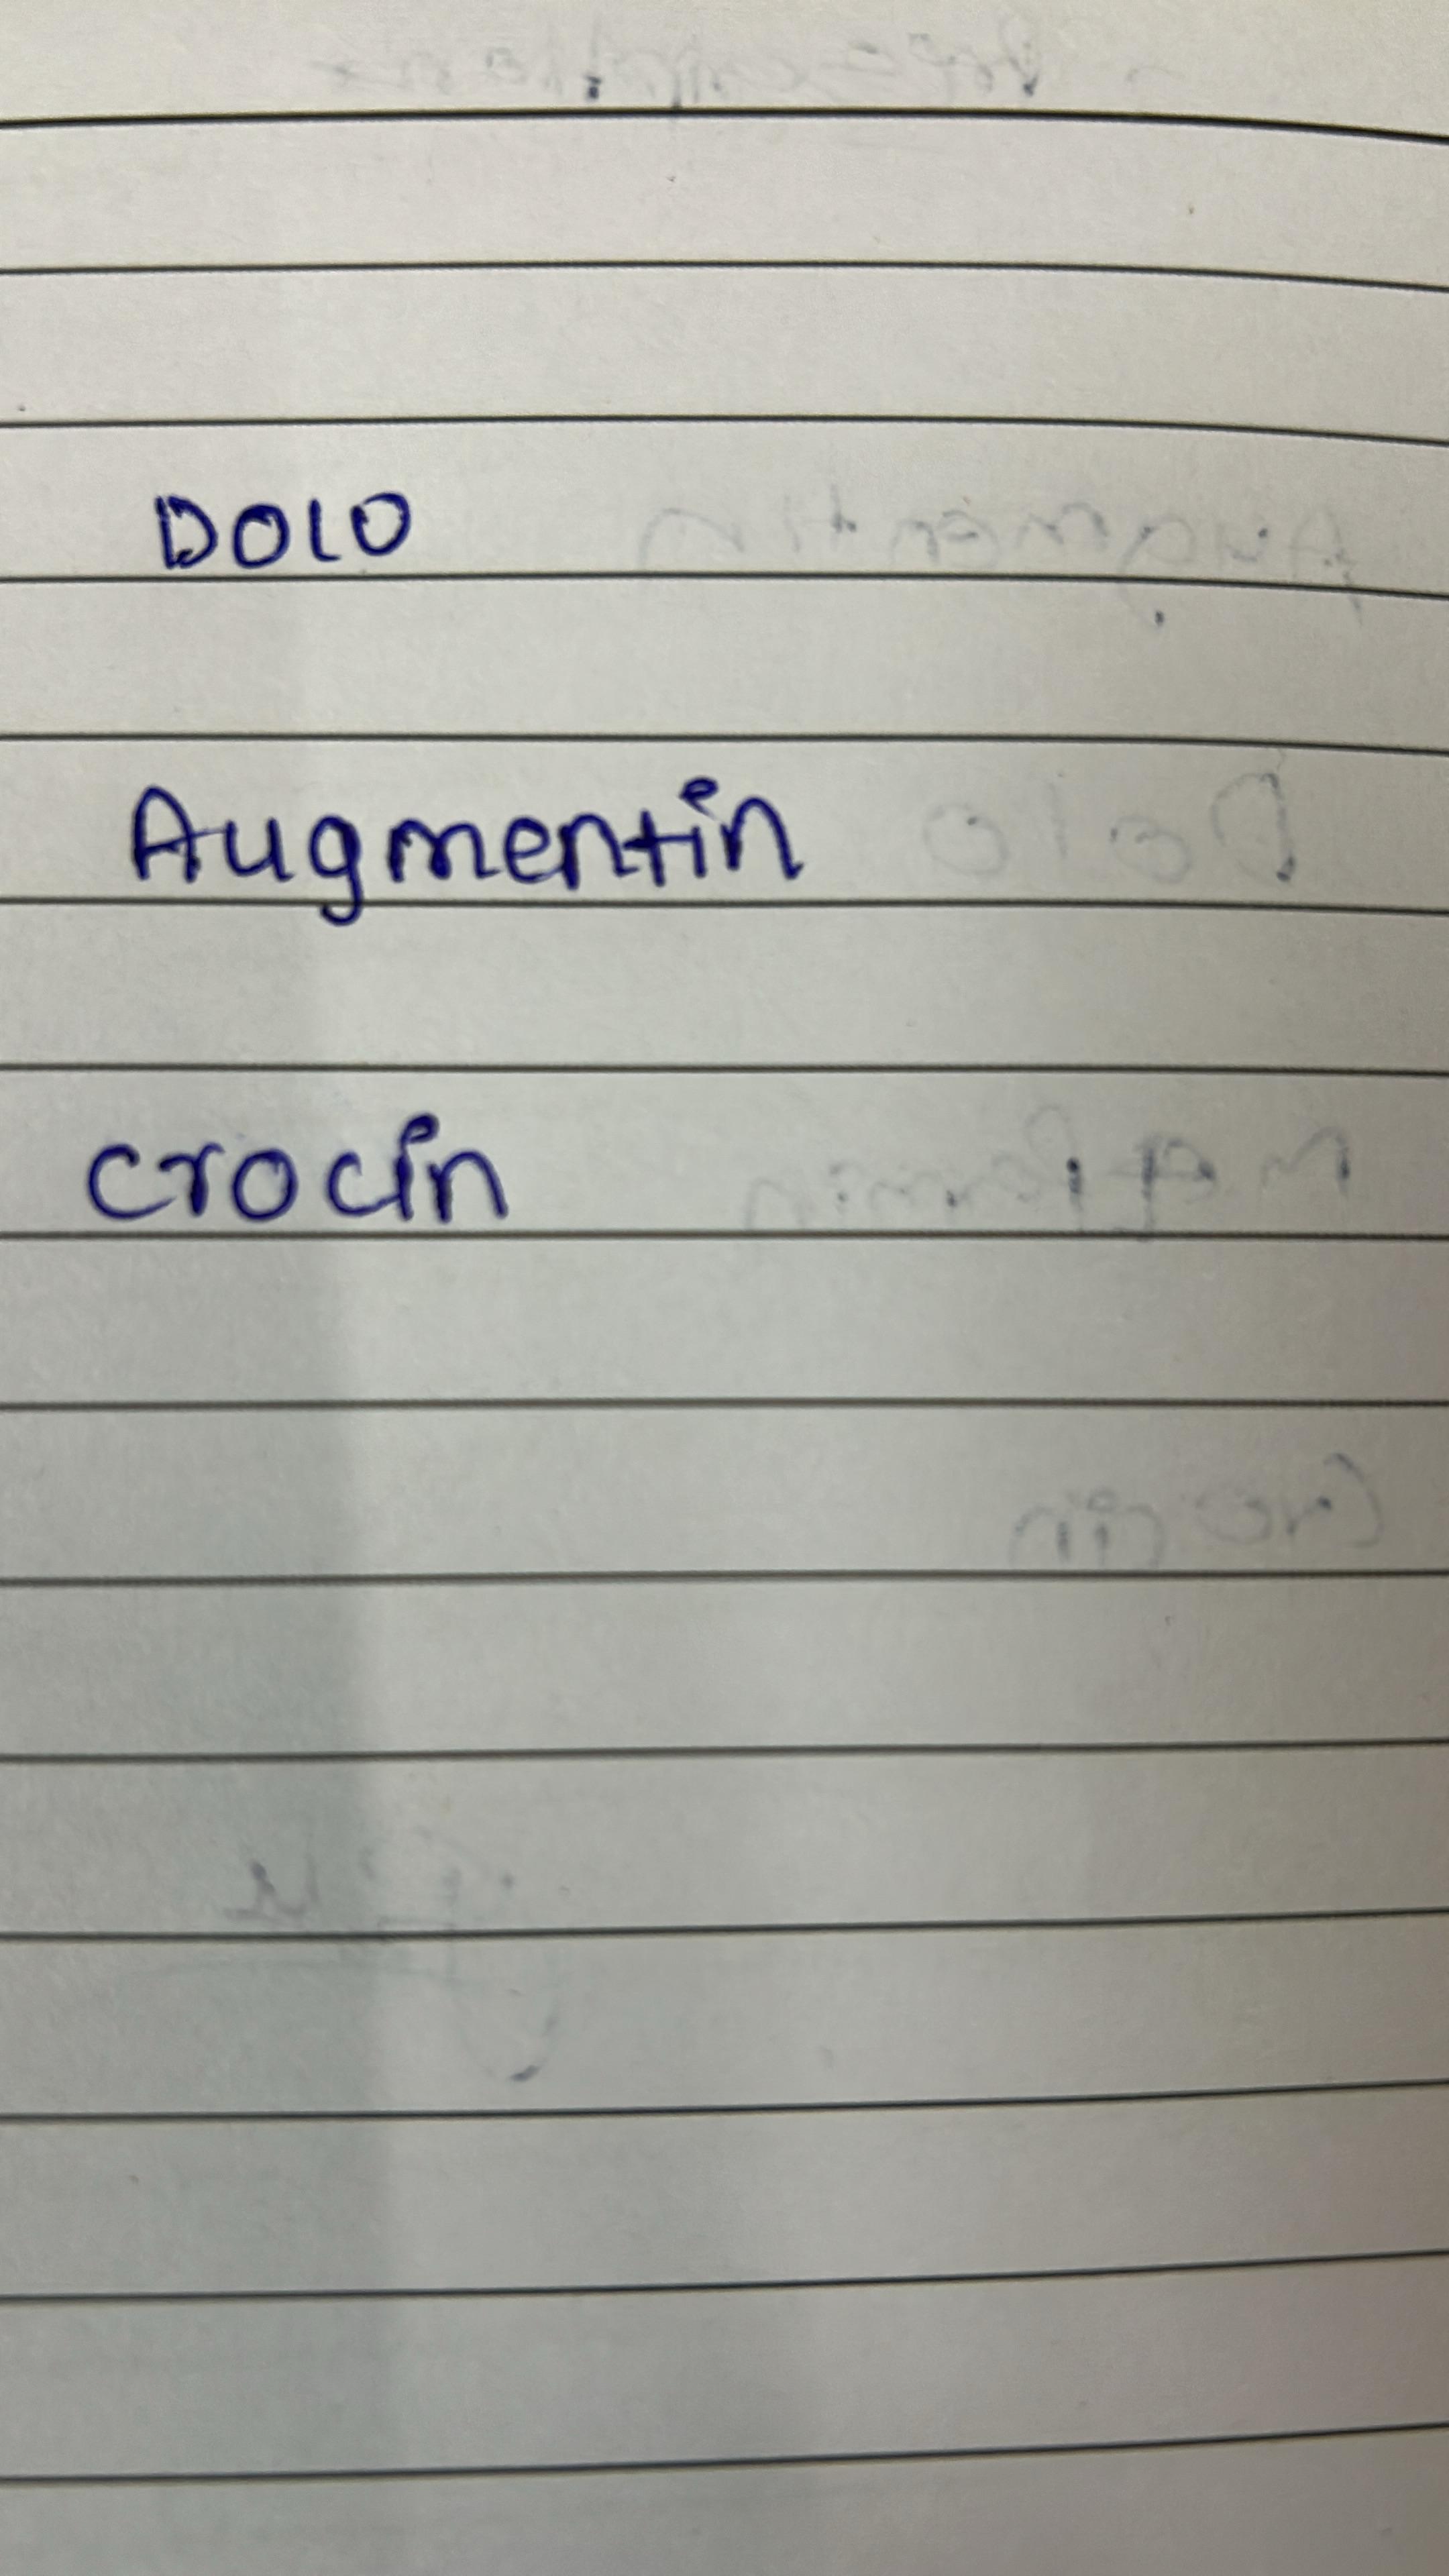 DOLO
Augmentin
Crocin